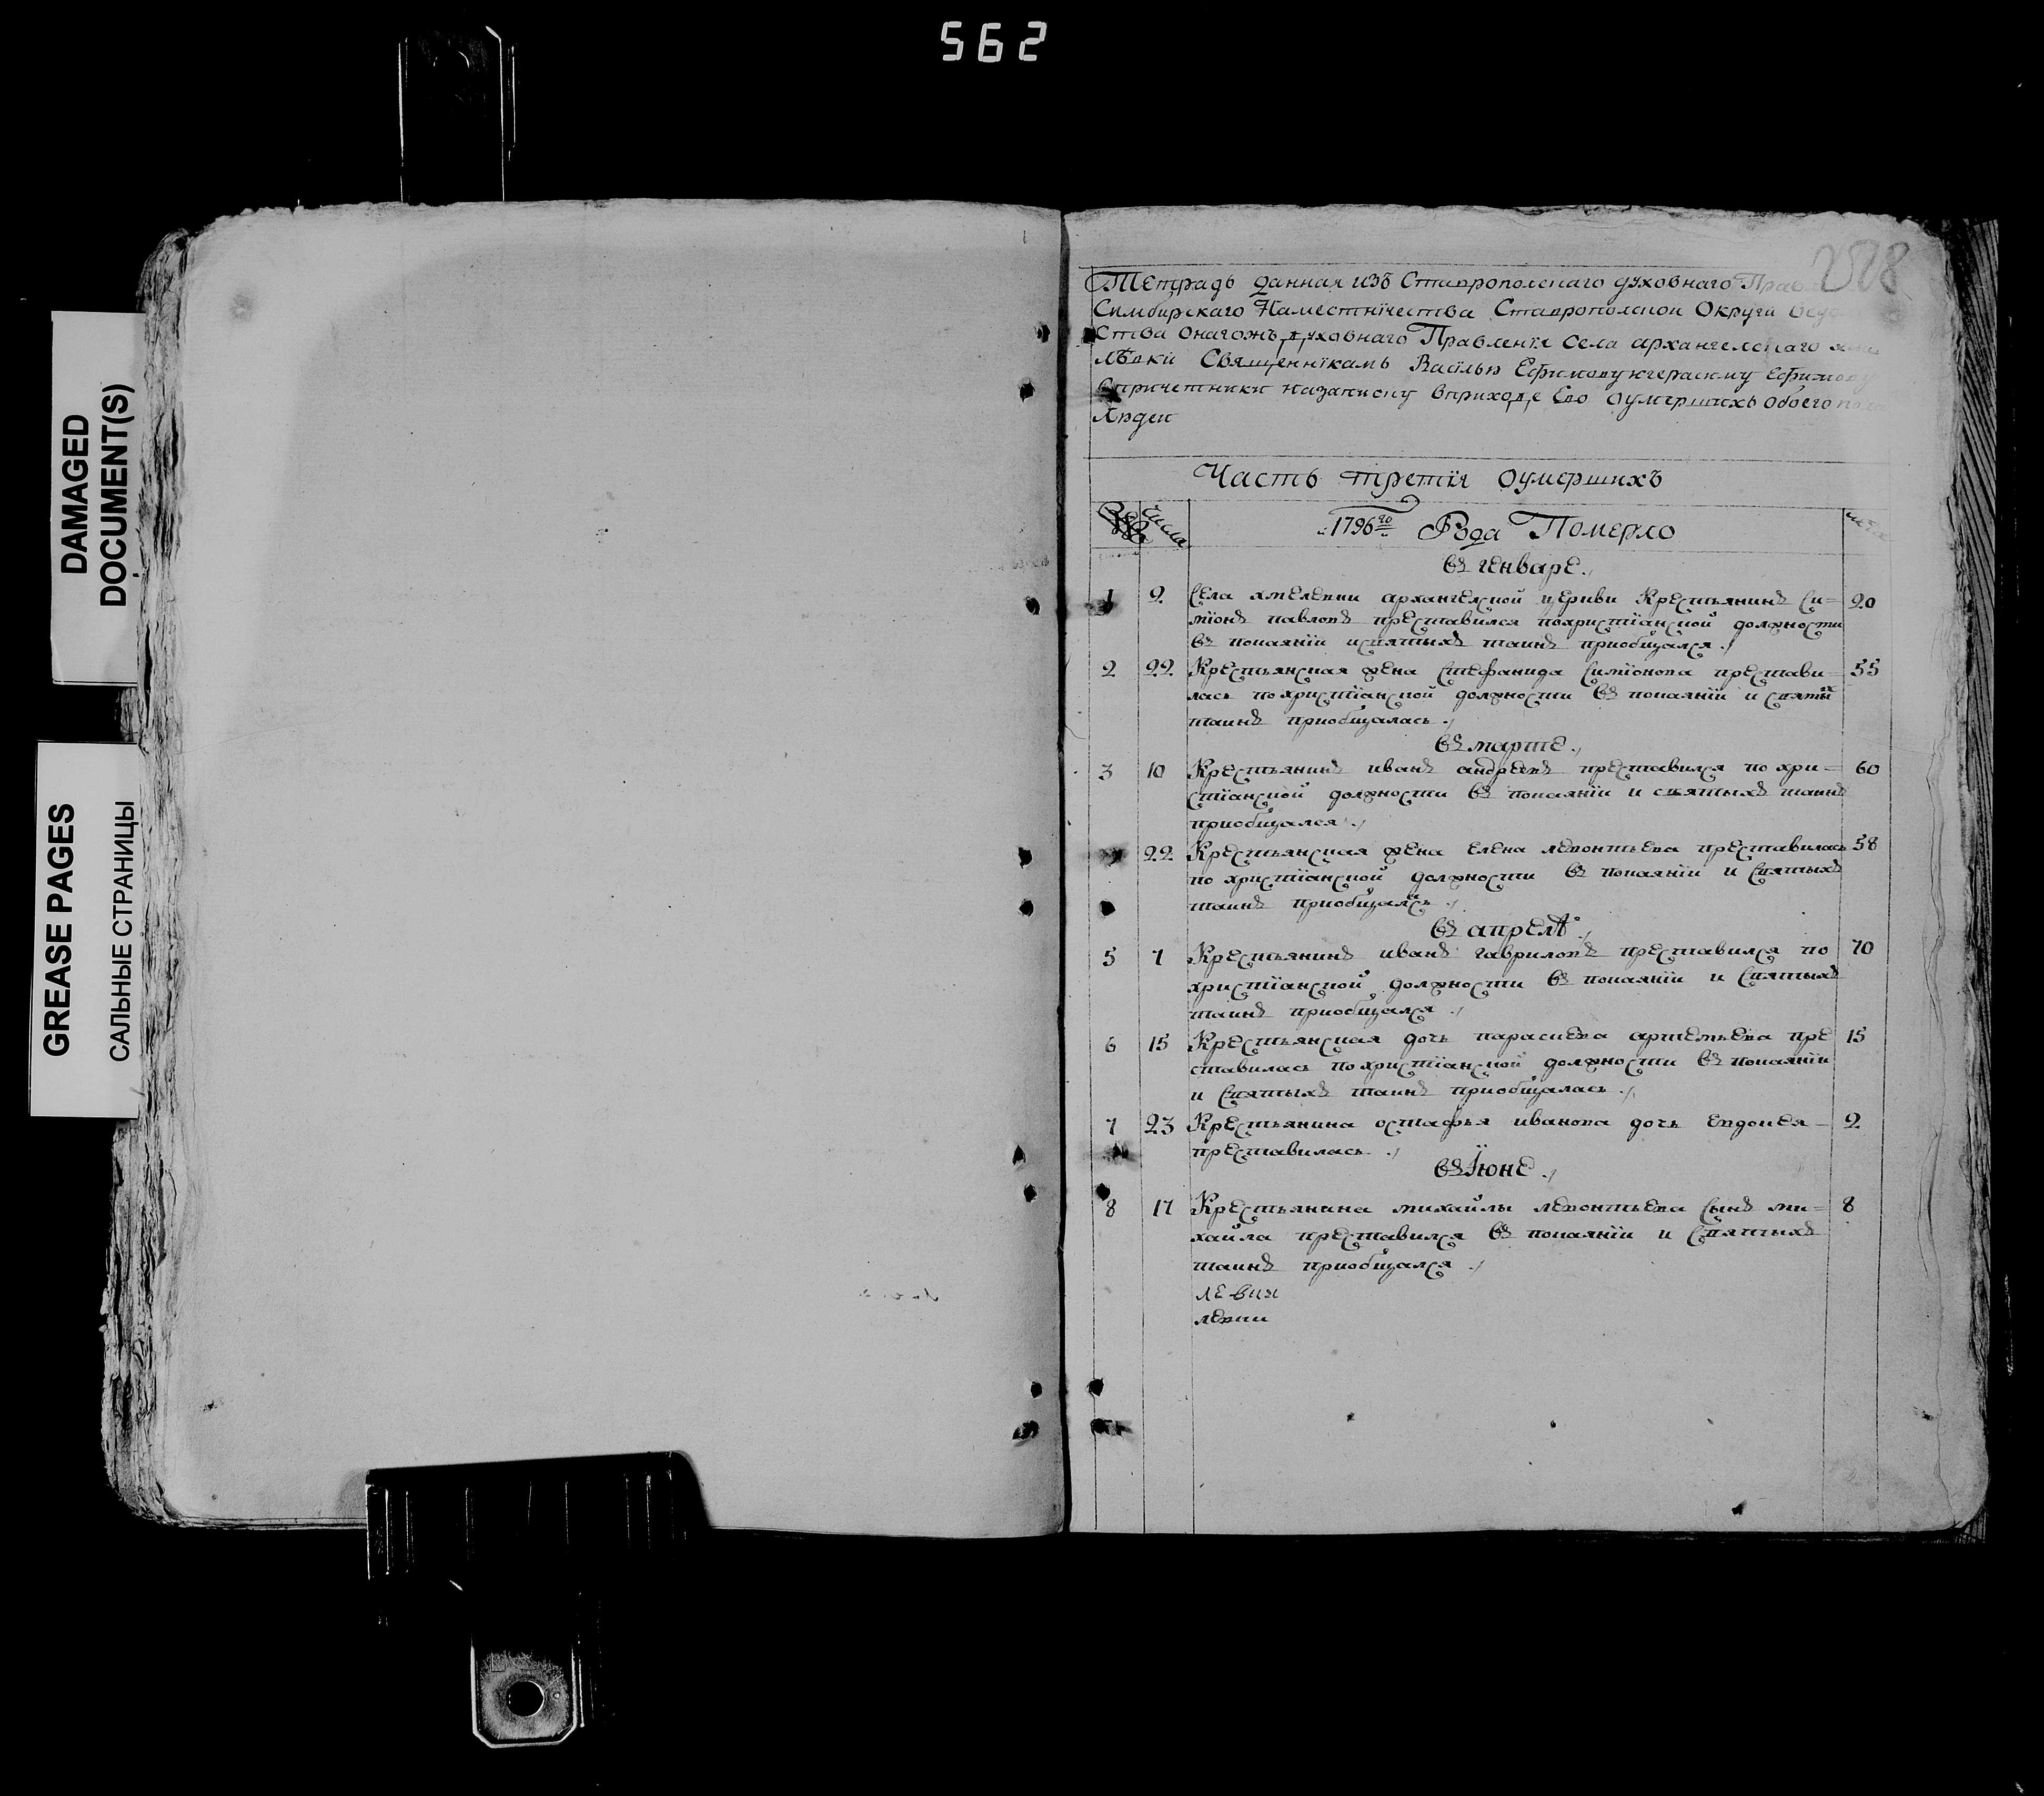 562
DAMAGED
DOCUMENT(S)
GREASE PAGES
САЛЬНЫЕ СТРАНИЦЫ
Тетрадь данная изъ Ставрополскаго духовнаго
Симбирскаго Наместничества Ставрополской Округи
ства онагожъ духовнаго Правленїя Села архангелскаго
лѣвки Священнїкамъ Васїлью Ефимову
причетники вприходе Его оумершихъ обоего
людей
Часть третїя оумершихъ
числа
1796го Года Померло
въ генваре
1 2 Села хмелевки архангелской церкви Крестьянинъ Си= 90
мїонъ павловъ преставился похристїанской должности
въ покаянїи исвятыхъ таинъ приобщался
2 22 Крестьянская жена Стефанида Симїонова престави= 55
лась по христїанской должности въ покаянїи и святых
таинъ приобщалась
въ марте
3 10 Крестьянинъ иванъ андреевъ преставился по хри= 60
стїанской должности въ покаянїи и святыхъ таинъ
приобщался
22 Крестьянская жена елена левонтьева преставилась 58
по христїанской должности въ покаянїи и Святыхъ
таинъ приобщалась
въ апрелѣ
5 7 Крестьянинъ иванъ гавриловъ преставился по 70
христїанской должности въ покаянїи и Святыхъ
таинъ приобщался
6 15 Крестьянская дочь параскева артемьева пре 15
ставилась похристїанской должности въ покаянїи
и Святыхъ таинъ приобщалась
7 23 Крестьянина остафья иванова дочь евдокея 2
преставилась
въ Їюне
8 17 Крестьянина михайлы левонтьева сынъ ми= 8
хайла преставился въ покаянїи и Святыхъ
таинъ приобщался
левки
левки